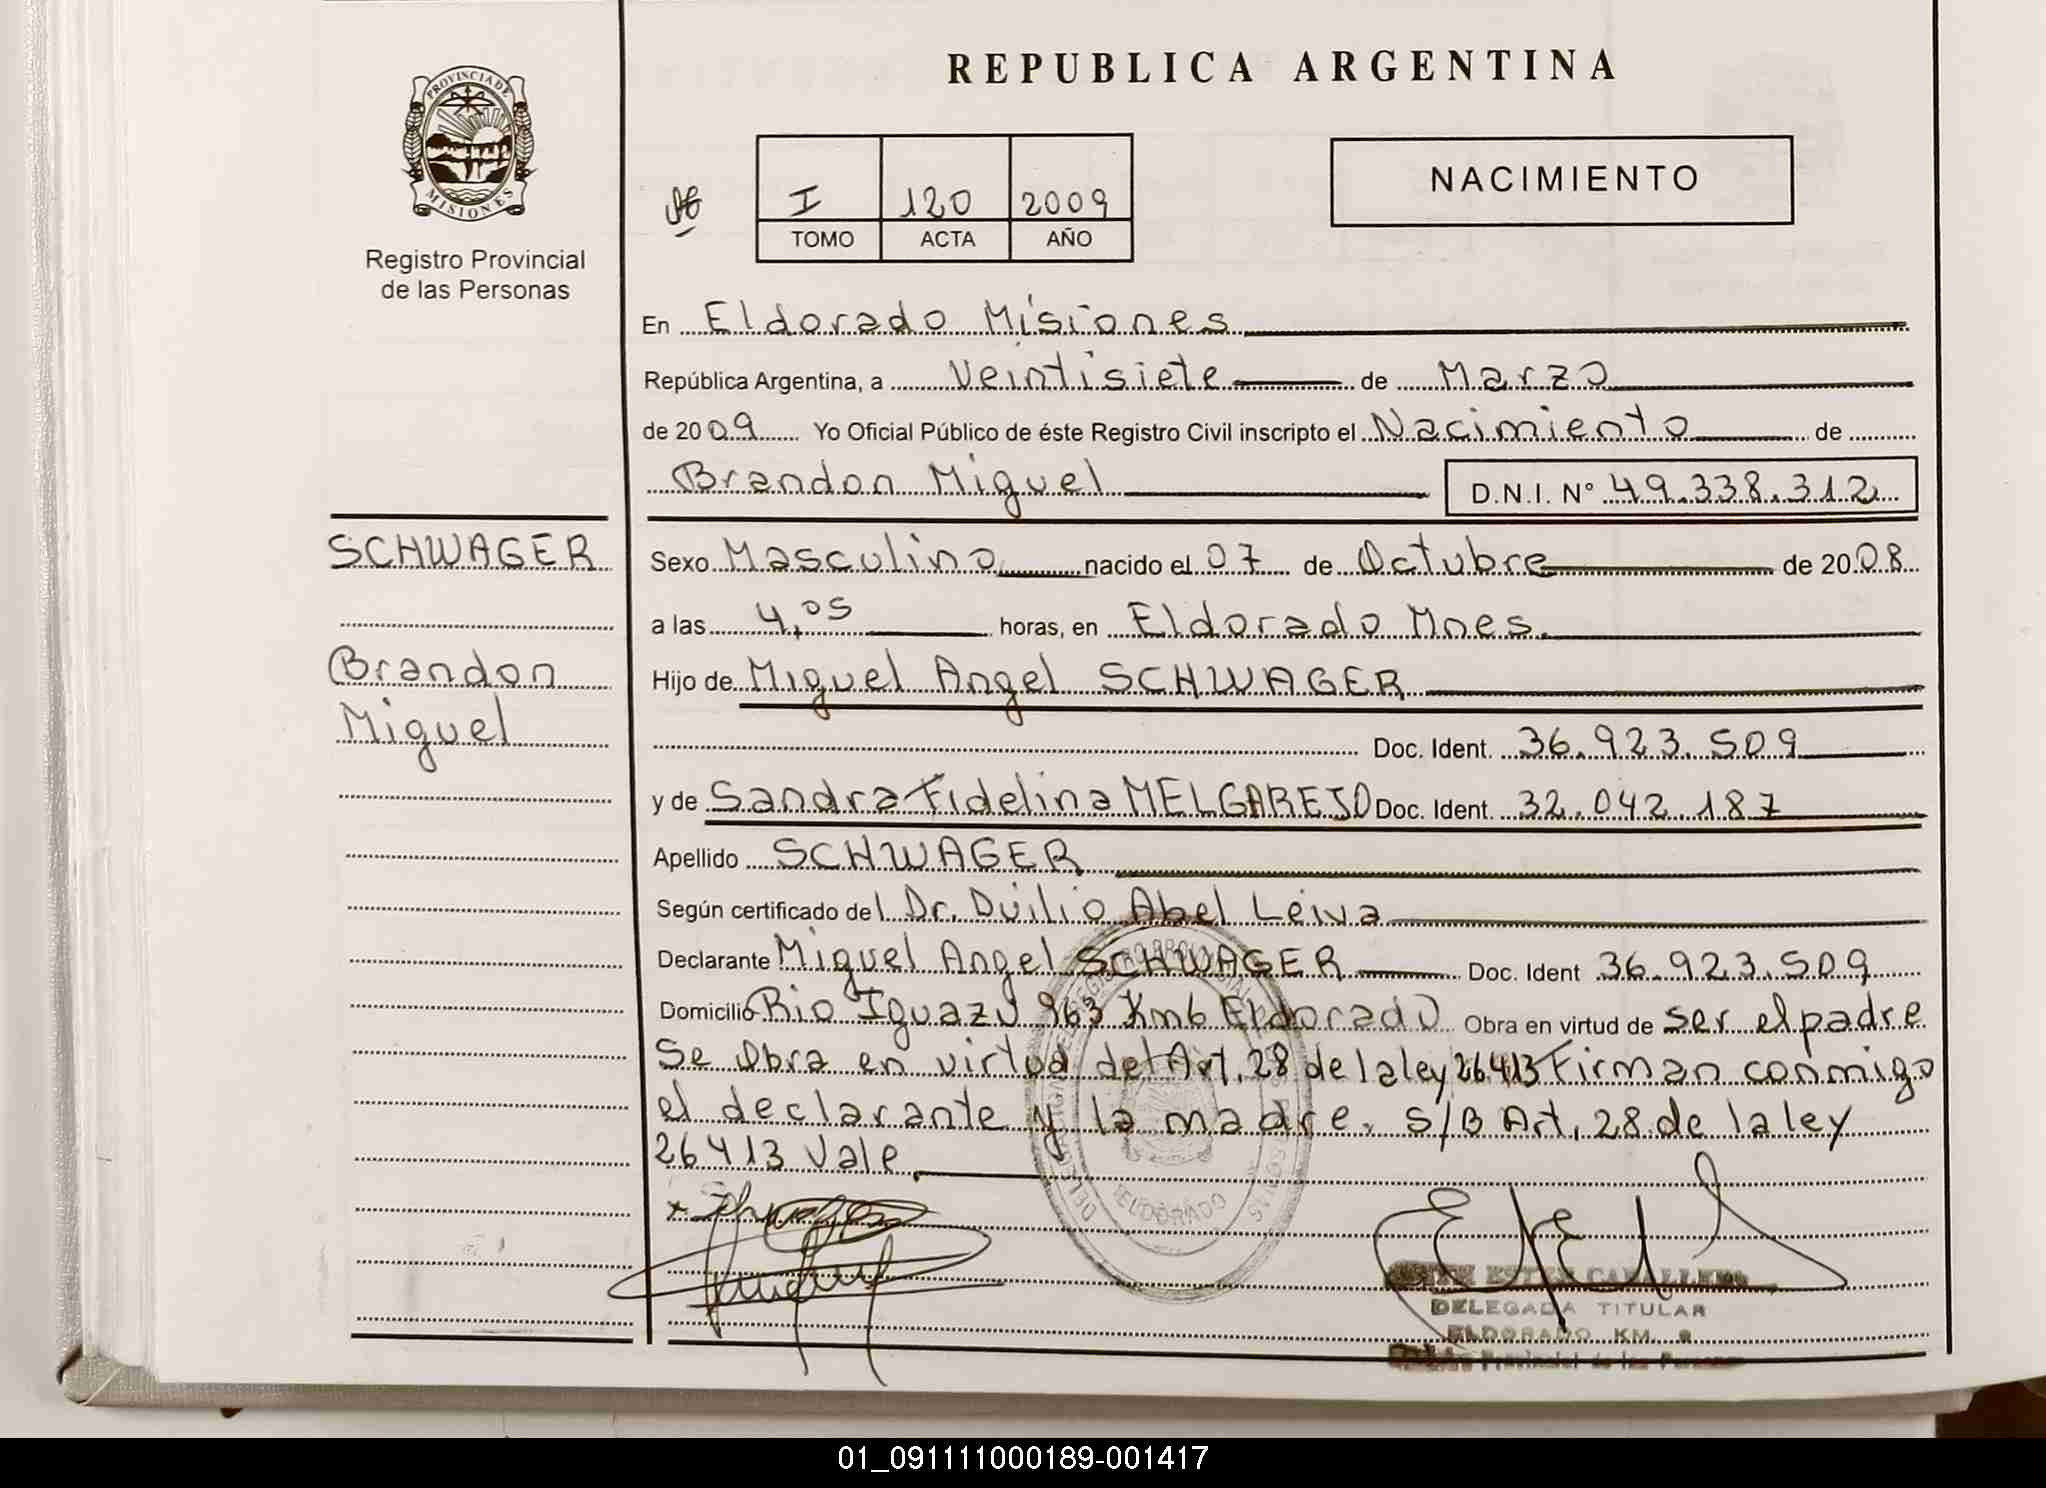 REPUBLICA ARGENTINA
PROVINCIA DE
MISIONES
Registro Provincial
de las Personas
I 120 2009
TOMO ACTA AÑO
NACIMIENTO
En Eldorado Misiones
República Argentina, a Veintisiete de Marzo
de 2009 Yo Oficial Público de éste Registro Civil inscripto el Nacimiento de
Brandon Miguel D.N.I. Nº 49.338.312
SCHWAGER
Brandon
Miguel
Sexo Masculino nacido el 07 de Octubre de 2008
a las 4,05 horas, en Eldorado Mnes.
Hijo de Miguel Angel SCHWAGER
Doc. Ident. 36.923.509
y de Sandra Fidelina MELGAREJO Doc. Ident. 32.042.187
Apellido SCHWAGER
Según certificado del Dr. Duilio Abel Leiva
Declarante Miguel Angel SCHWAGER Doc. Ident 36.923.509
Domicilio Rio Iguazu 963 Km6 Eldorado Obra en virtud de ser el padre
Se Obra en virtud del Art. 28 de la ley 26413 Firman conmigo
el declarante y la madre. S/B Art. 28 de la ley
26413 Vale
ELDORADO
ESTER CABALLERO
DELEGADA TITULAR
ELDORADO KM.
Provincial de las Personas
01_091111000189-001417